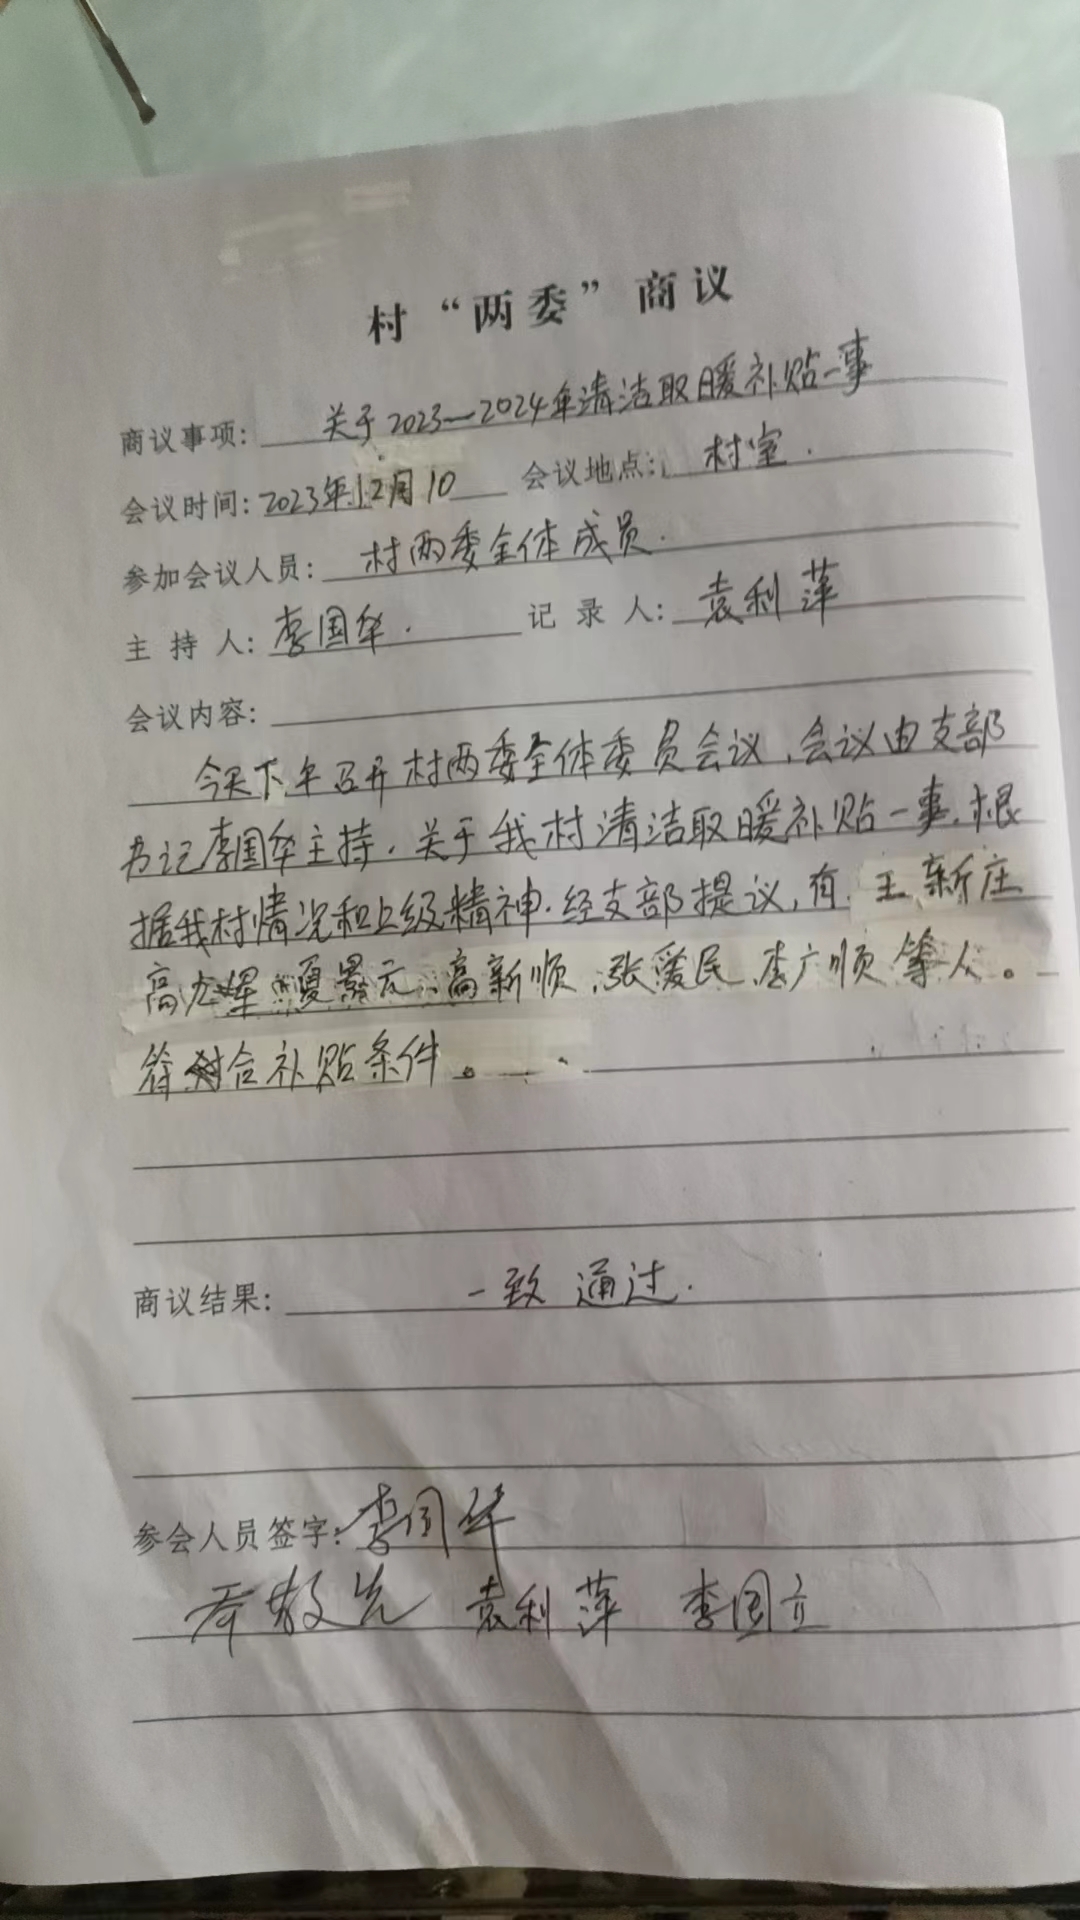 村“两委”商议
商议事项: 关于2023—2024年清洁取暖补贴一事
会议时间: 2023年12月10 会议地点: 村室.
参加会议人员: 村两委全体成员.
主持人: 李国华. 记录人: 袁利萍
会议内容:
今天下午召开村两委全体委员会议,会议由支部
书记李国华主持.关于我村清洁取暖补贴一事.根
据我村情况和上级精神.经支部提议,有.王新庄
高 夏景元.高新顺.张爱民.李广顺等人。
符合补贴条件。
商议结果: 一致通过.
参会人员签字: 李国华
袁利萍 李国立